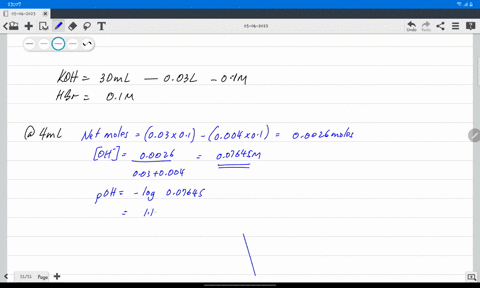 13:07
05-04-2023
05-04-2023
Undo
Redo
KOH = 30mL — 0.03L - 0.1M
HBr = 0.1M
@ 4mL Net moles = (0.03 x 0.1) - (0.004 x 0.1) = 0.0026 moles
[OH⁻] = 0.0026 = 0.07645M
0.03 + 0.004
pOH = - log 0.07645
= 1.1.
31/31 Page